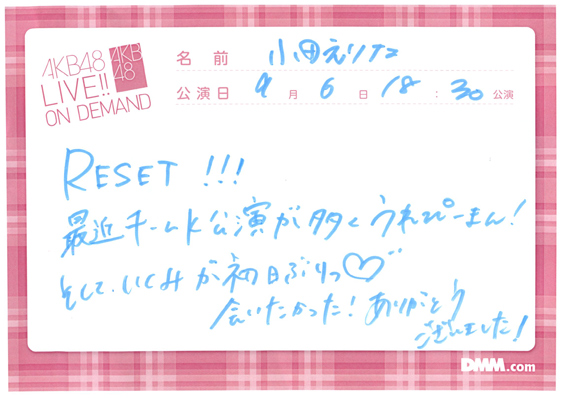 AKB48
LIVE!!
ON DEMAND
AKB
48
名前 小田えりな
公演日 9月6日 18:30公演
RESET !!!
最近チームK公演が多くうれぴーまん!
そして、いくみが初日ぶりっ♡
会いたかった!ありがとう
ございました!
DMM.com